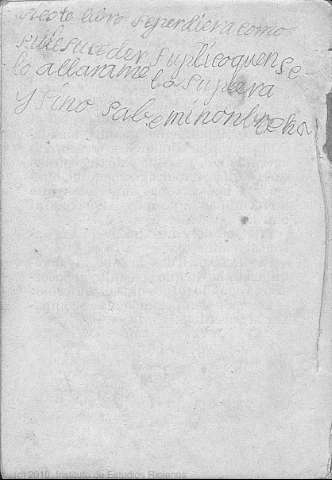 si este libro se perdiera como
suele suceder suplico quen se
lo allara me lo supiera
y si no sabe mi nonbre
(c) 2010. Instituto de Estudios Riojanos